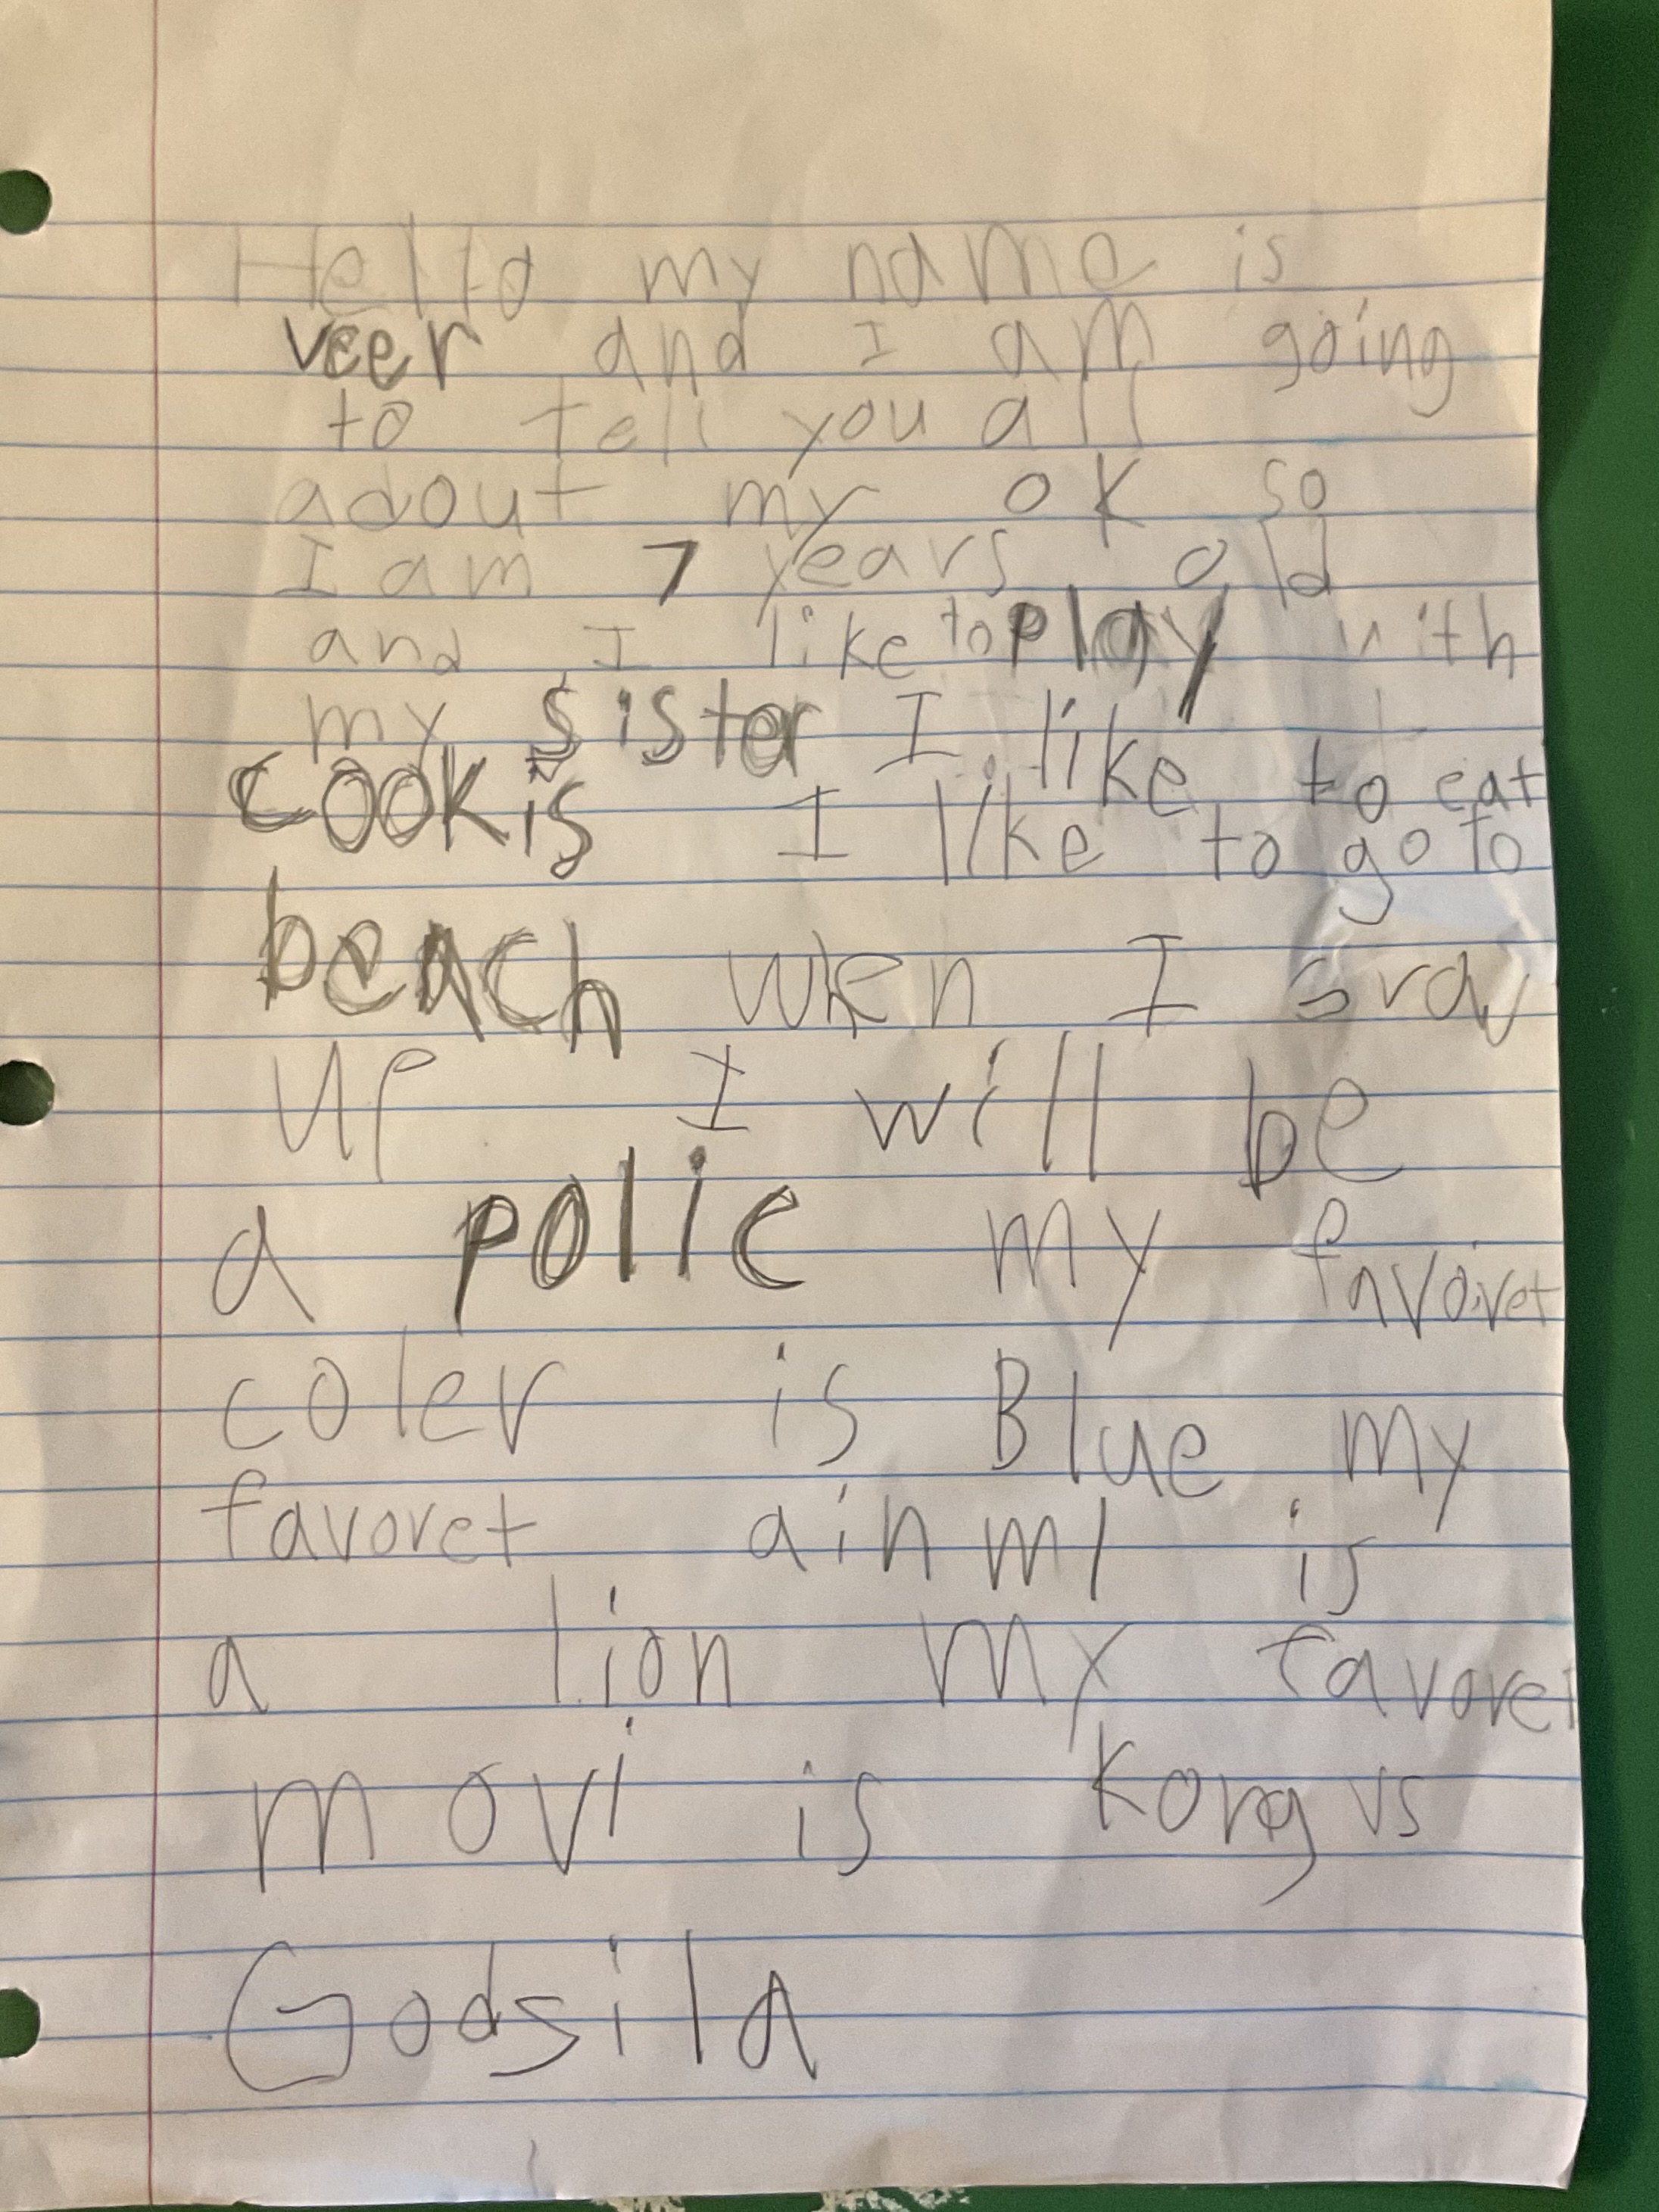 Hello my name is
veer and I am going
to tell you all
adout my ok so
I am 7 years old
and I like to play with
my sister I like to eat
cookis I like to go to
beach when I
up I will be
a polic my favoiret
coler is Blue my
favoret ainml is
a lion my favoret
movi is Kong vs
Godsila